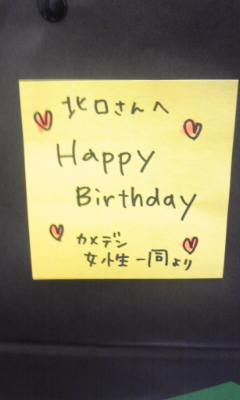 北口さんへ
Happy
Birthday
カメデン
女性一同より